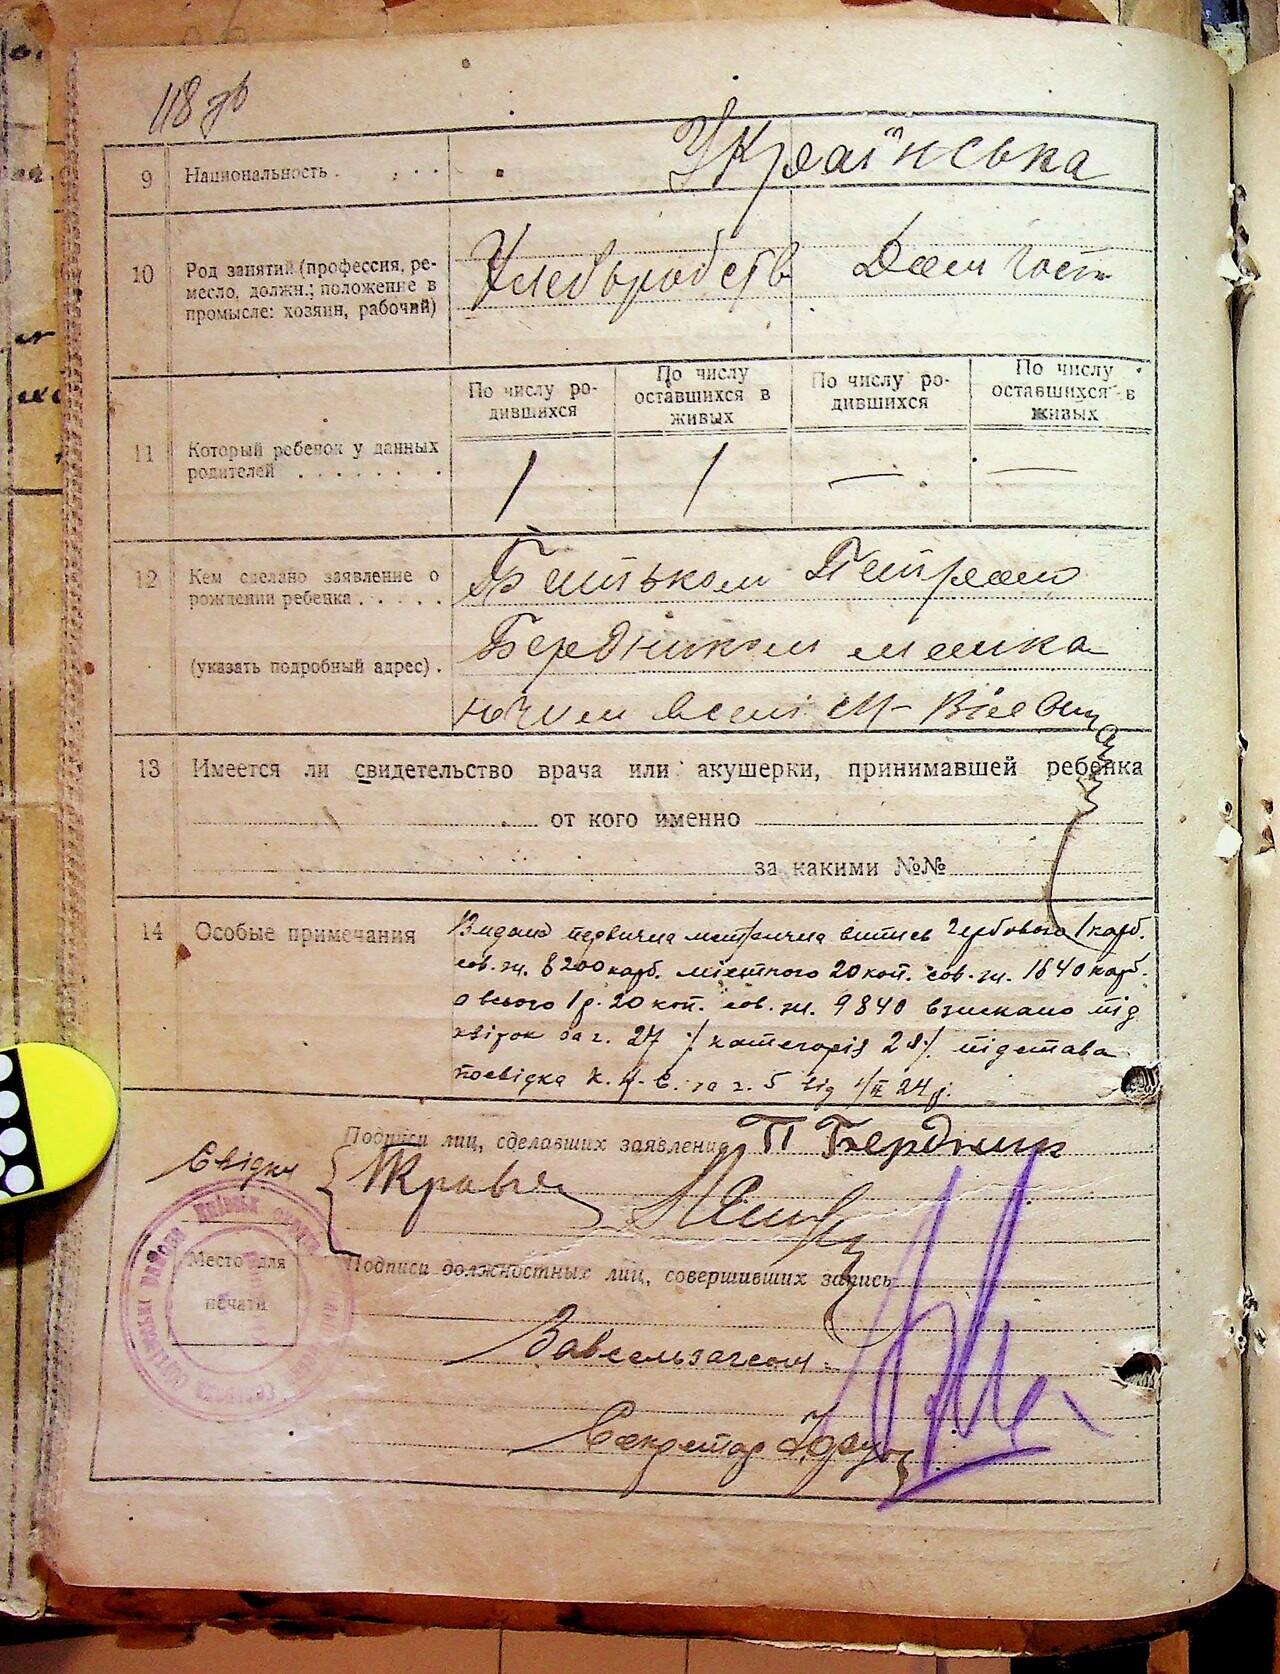 118 зв
9 Национальность . . . . Українська
10 Род занятий (профессия, ре-
месло, должн.; положение в
промысле: хозяин, рабочий)
Хлеборобств Дом гост
По числу ро-
дившихся
По числу
оставшихся в
живых
По числу ро-
дившихся
По числу
оставшихся в
живых
11 Который ребенок у данных
родителей . . . . . . .
1 1 — —
12 Кем сделано заявление о
рождении ребенка . . . . .
Батьком Петром
(указать подробный адрес) .
Бердником мешка
ючим в селі М-
13 Имеется ли свидетельство врача или акушерки, принимавшей ребенка
от кого именно
за какими №№
14 Особые примечания
Видана первична метрична випись Гербового 1 карб.
сов. зн. 8200 карб. містного 20 коп. сов. зн. 1640 карб.
а всього 1 р. 20 коп. сов. зн. 9840 взискано під
квіток за г. 27 /. категорія 2 /. підстава
посвідка К.Н.С. за г. 5 від 1/II 24 р.
Подписи лиц, сделавших заявление П Бердник
Свідки
Подписи должностных лиц, совершивших запись
Место для
печати
Завсельзагсом
Секретар